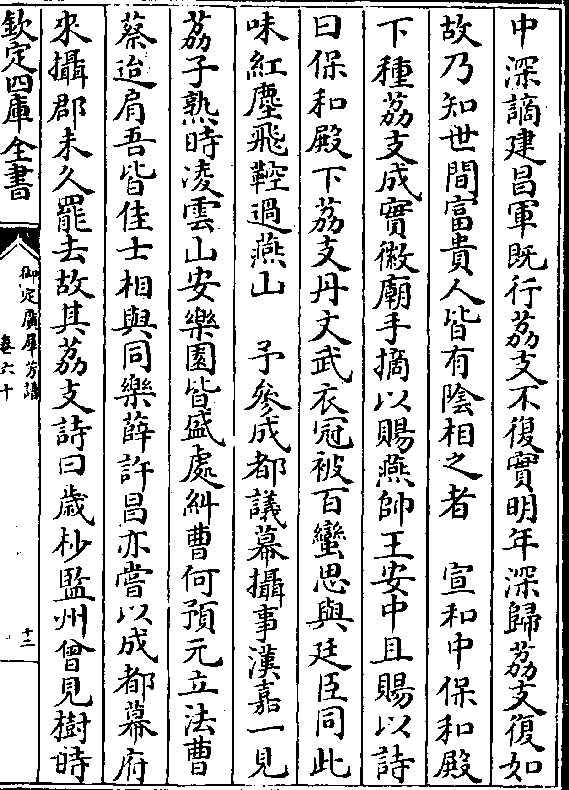 中深謫建昌軍既行荔支不復實明年深歸荔支復如
故乃知世間富貴人皆有陰相之者　宣和中保和殿
下種荔支成實徽廟手摘以賜燕帥王安中且賜以詩
曰保和殿下荔支丹文武衣冠被百蠻思與廷臣同此
味紅塵飛鞚過燕山　予參成都議幕攝事漢嘉一見
荔子熟時凌雲山安樂園皆盛處糾曹何預元立法曹
蔡迨肩吾皆佳士相與同樂薛許昌亦嘗以成都幕府
來攝郡未久罷去故其荔支詩曰歲杪監州曾見樹時
欽定四庫全書
御定廣羣芳譜
卷六十
十二